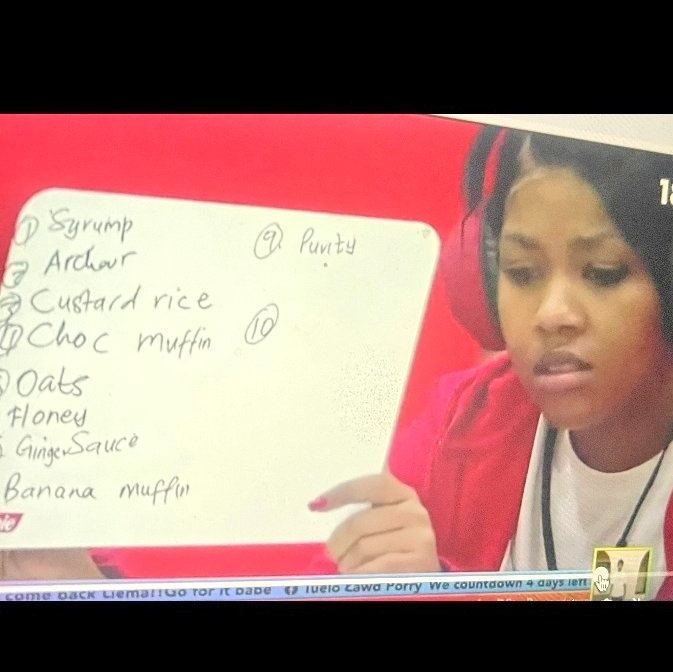 ① Syrump
② Archar
③ Custard rice
④ Choc muffin
Oats
Honey
Ginger Sauce
Banana muffin
⑨. Purity
⑩
come back Liema!!Go for it babe
Tuelo Lawd Porry We countdown 4 days left